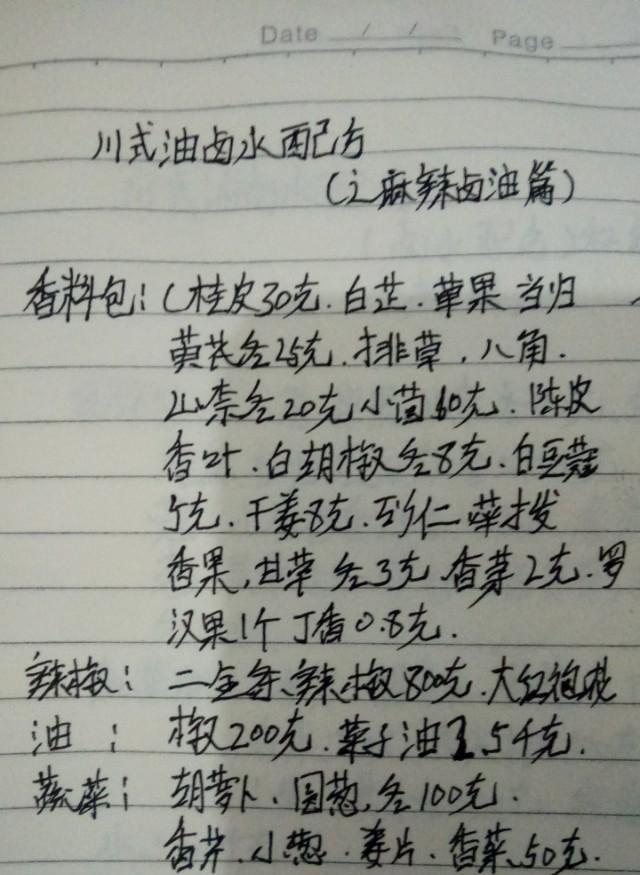 Date / / Page
川式油卤水配方
(之麻辣卤油篇)
香料包:(桂皮30克.白芷.草果 当归
黄芪各25克.排草.八角.
山奈各20克小茴60克.陈皮
香叶.白胡椒各8克.白豆蔻
5克.干姜8克.砂仁 荜拨
香果,甘草各3克.香茅2克.罗
汉果1个丁香0.8克.
辣椒: 二金条辣椒800克.大红袍花
油: 椒200克.菜子油 5千克.
蔬菜: 胡萝卜.圆葱,各100克.
香芹.小葱.姜片.香菜,50克.